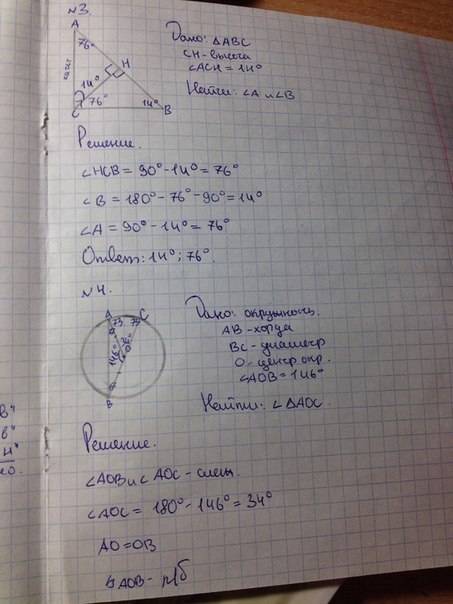 №3.
A
76°
катет
H
14°
76°
14°
C
B
Дано: ΔABC
CH - высота
∠ACH = 14°
Найти: ∠A и ∠B
Решение.
∠HCB = 90° - 14° = 76°
∠B = 180° - 76° - 90° = 14°
∠A = 90° - 14° = 76°
Ответ: 14°; 76°.
№4.
A
C
73
73
146°
B
Дано: окружность.
AB - хорда
BC - диаметр
O - центр окр.
∠AOB = 146°
Найти: ∠ΔAOC.
Решение.
∠AOB и ∠AOC - смеж.
∠AOC = 180° - 146° = 34°
AO = OB
ΔAOB - р/б